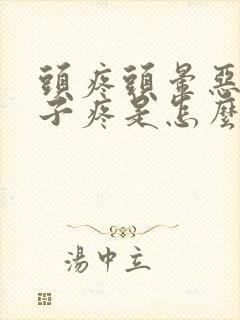 頭疼頭暈惡
子疼是怎麼
湯中立